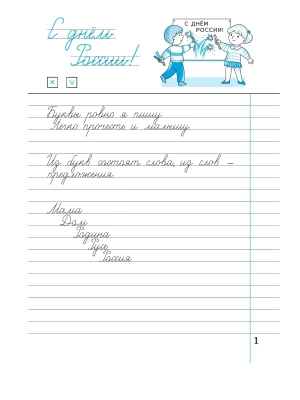 С днём
России!
С ДНЁМ
РОССИИ!
Буквы ровно я пишу
Легко прочесть и малышу
Из букв состоят слова, из слов –
предложения.
Мама
Дом
Родина
Русь
Россия
1